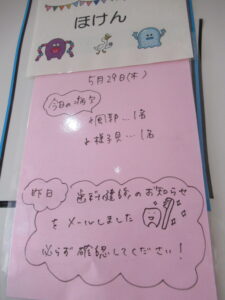 ほけん
5月29日(木)
今日の病欠
↓風邪…1名
↓様子見…1名
昨日
歯科健診のお知らせ
をメールしました
必ず確認してください！